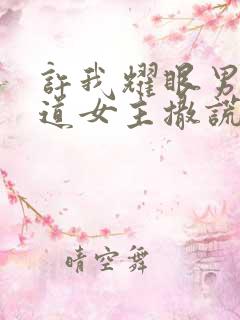 許我耀眼男
道女主撒謊
晴空舞